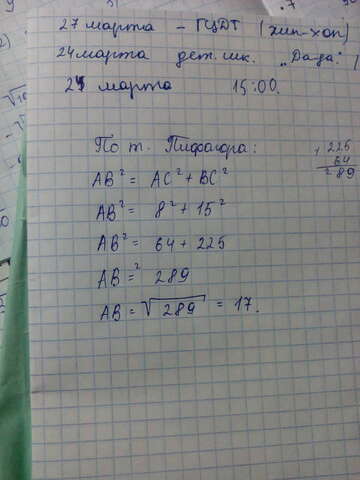 27 марта - ГЦДТ (хип-хоп)
24 марта дет. шк. "Да-да!"
24 марта 15:00.
По т. Пифагора:
AB² = AC² + BC²
AB² = 8² + 15²
AB² = 64 + 225
AB² = 289
AB = √289 = 17.
+ 225
64
289